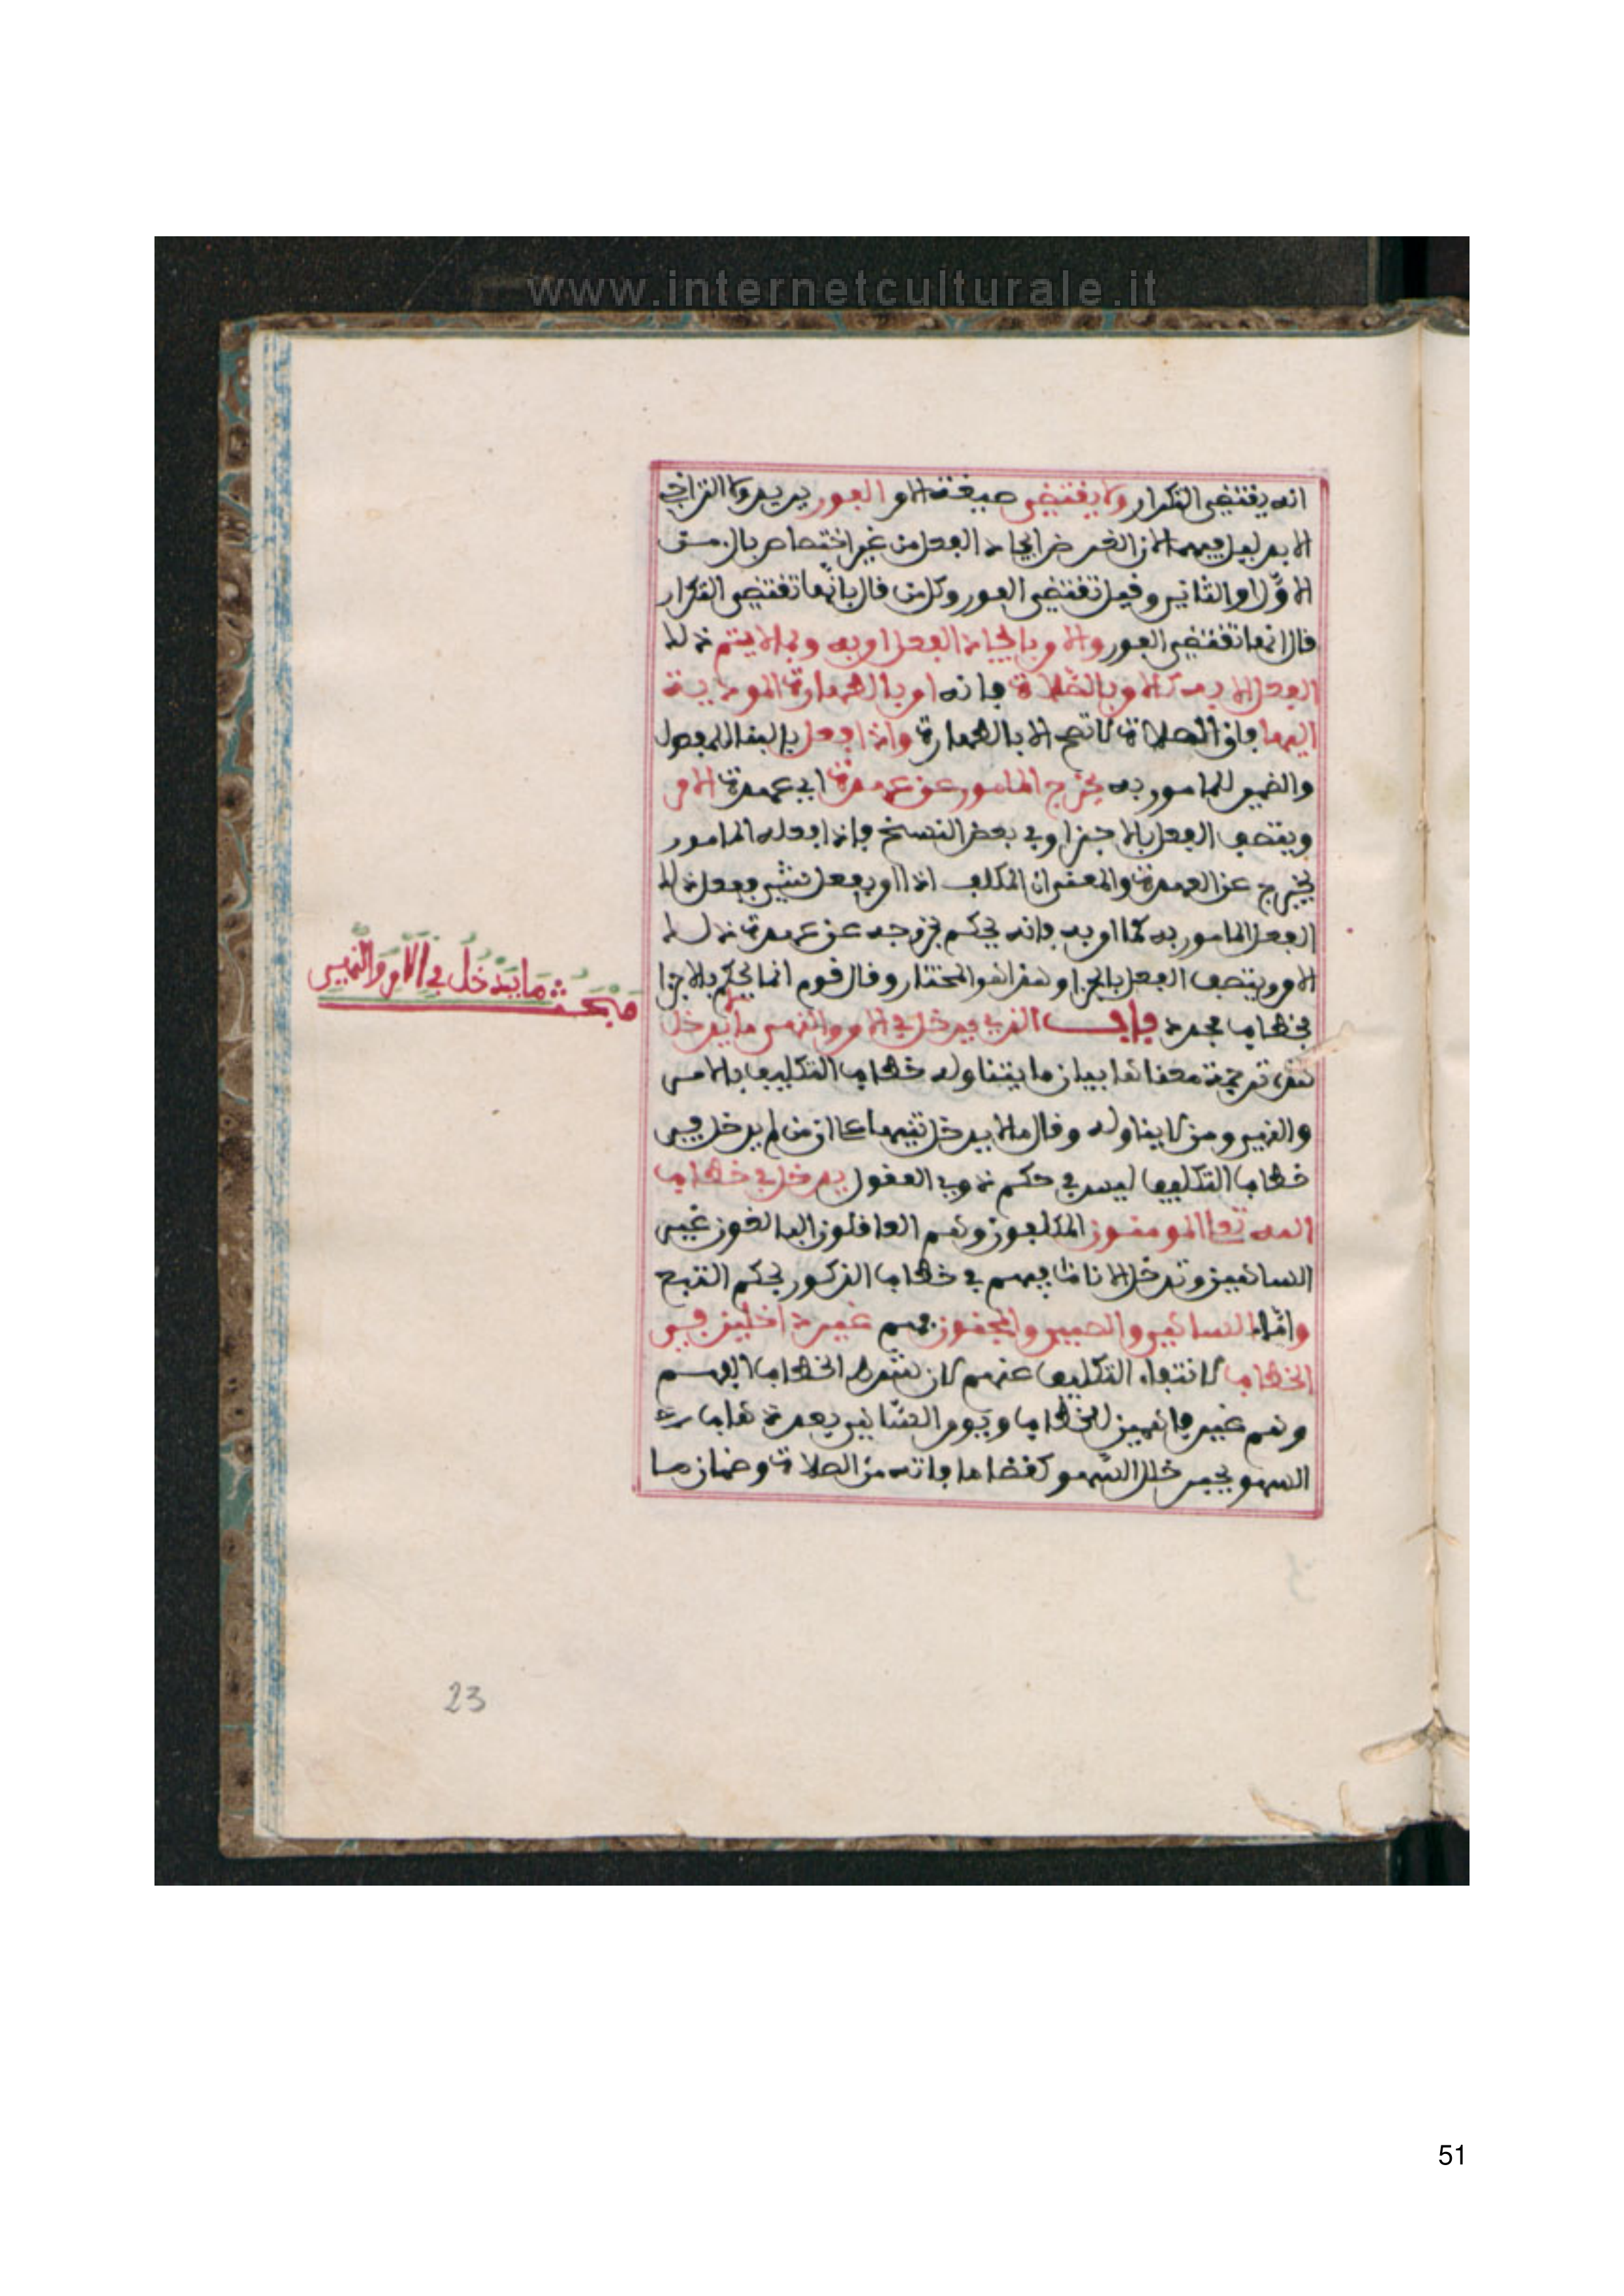 www.internetculturale.it
انه يقتضي التكرار ولا يقتضي صيغة الامر الفور يريد ولا التراخي
الا بدليل فيهما لان الغرض ايجاد الفعل من غير اختصاص بالزمن
الاول او الثاني وقيل تقتضي الفور وكل من قال بانها تقتضي التكرار
قال انها تقتضي الفور والامر بايجاد الفعل امر به وبما لا يتم ذلك
الفعل الا به كالامر بالصلاة فانه امر بالطهارة المودية
اليها فان الصلاة لا تصح الا بالطهارة واذا فعل بالبنا للمفعول
والضمير للمامور به يخرج المامور عن عهدته اي عهدة الامر
ويتصف الفعل بالاجزا وفي بعض النسخ واذا فعله المامور
يخرج عن العهدة والمعنى ان المكلف اذا امر بفعل شيء ففعل ذلك
الفعل المامور به كما امر به فانه يحكم بخروجه عن عهدة ذلك
الامر ويتصف الفعل بالاجزا وهذا هو المختار وقال قوم انما يحكم بالاجزا
بخطاب مجدد باب الذي يدخل في الامر والنهي وما لا يدخل
هذه ترجمة معناها بيان ما يتناوله خطاب التكليف بالامر
والنهي ومن لا يتناوله وقال ما لا يدخل تنبيها على ان من لم يدخل في
خطاب التكليف ليس في حكم ذوي العقول يدخل في خطاب
الله تعالى المومنون المكلفون وهم العاقلون البالغون غير
الساهين وتدخل الاناث فيهم في خطاب الذكور بحكم التبع
واما الساهي والصبي والمجنون فهم غير داخلين في
الخطاب لانتفاء التكليف عنهم لان شرط الخطاب الفهم
وهم غير فاهمين للخطاب ويومر الساهي بعد ذهاب
السهو بجبر خلل السهو كقضا ما فاته من الصلاة وضمان ما
مبحث ما يدخل في الامر والنهي
23
51